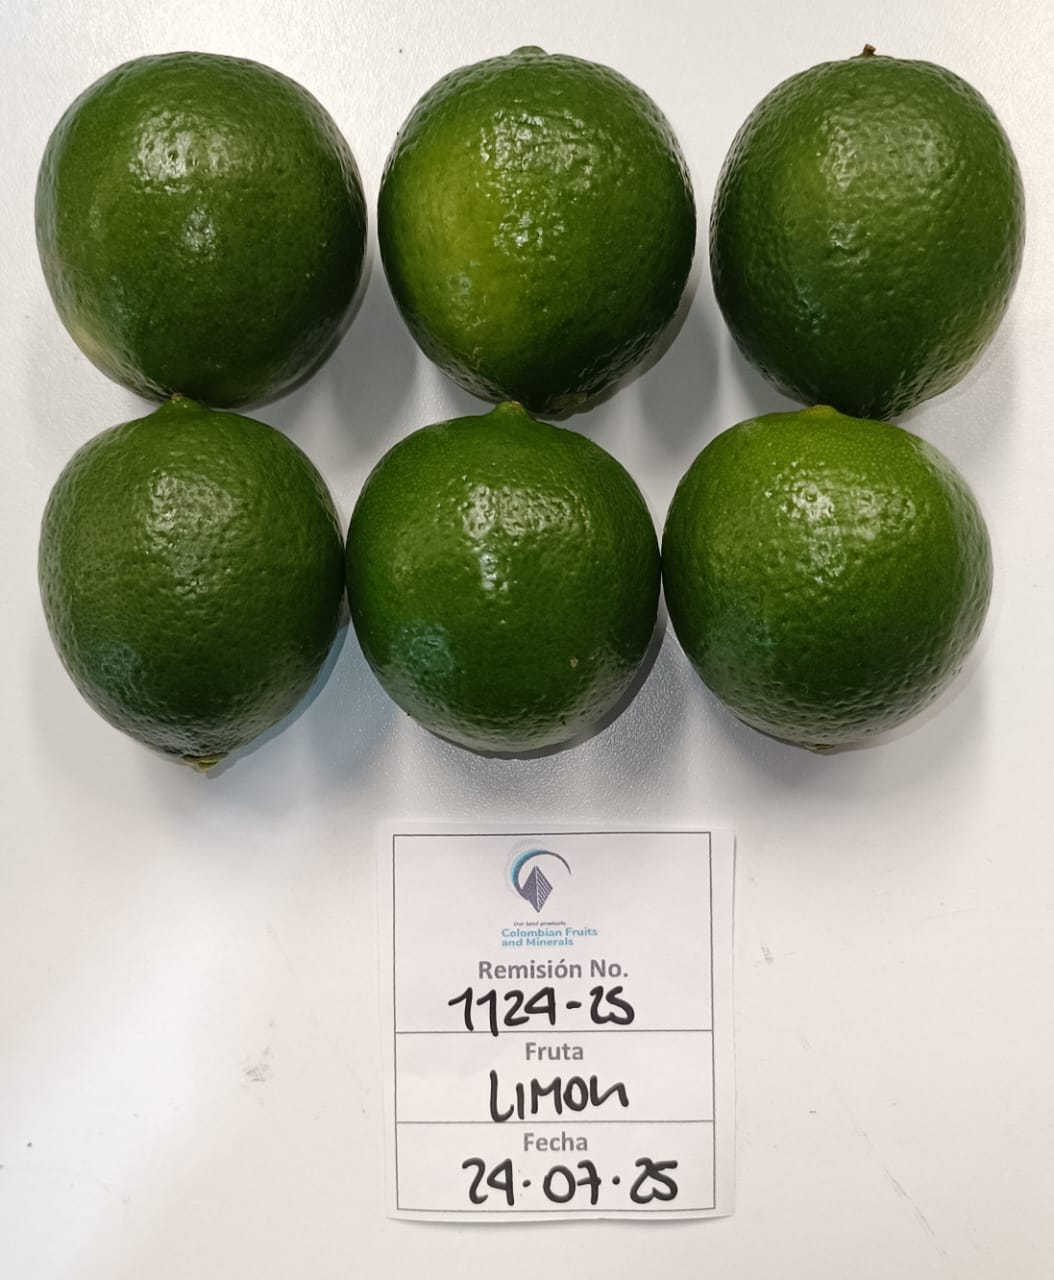 Our land products
Colombian Fruits
and Minerals
Remisión No.
1124-25
Fruta
LIMON
Fecha
24.07.25